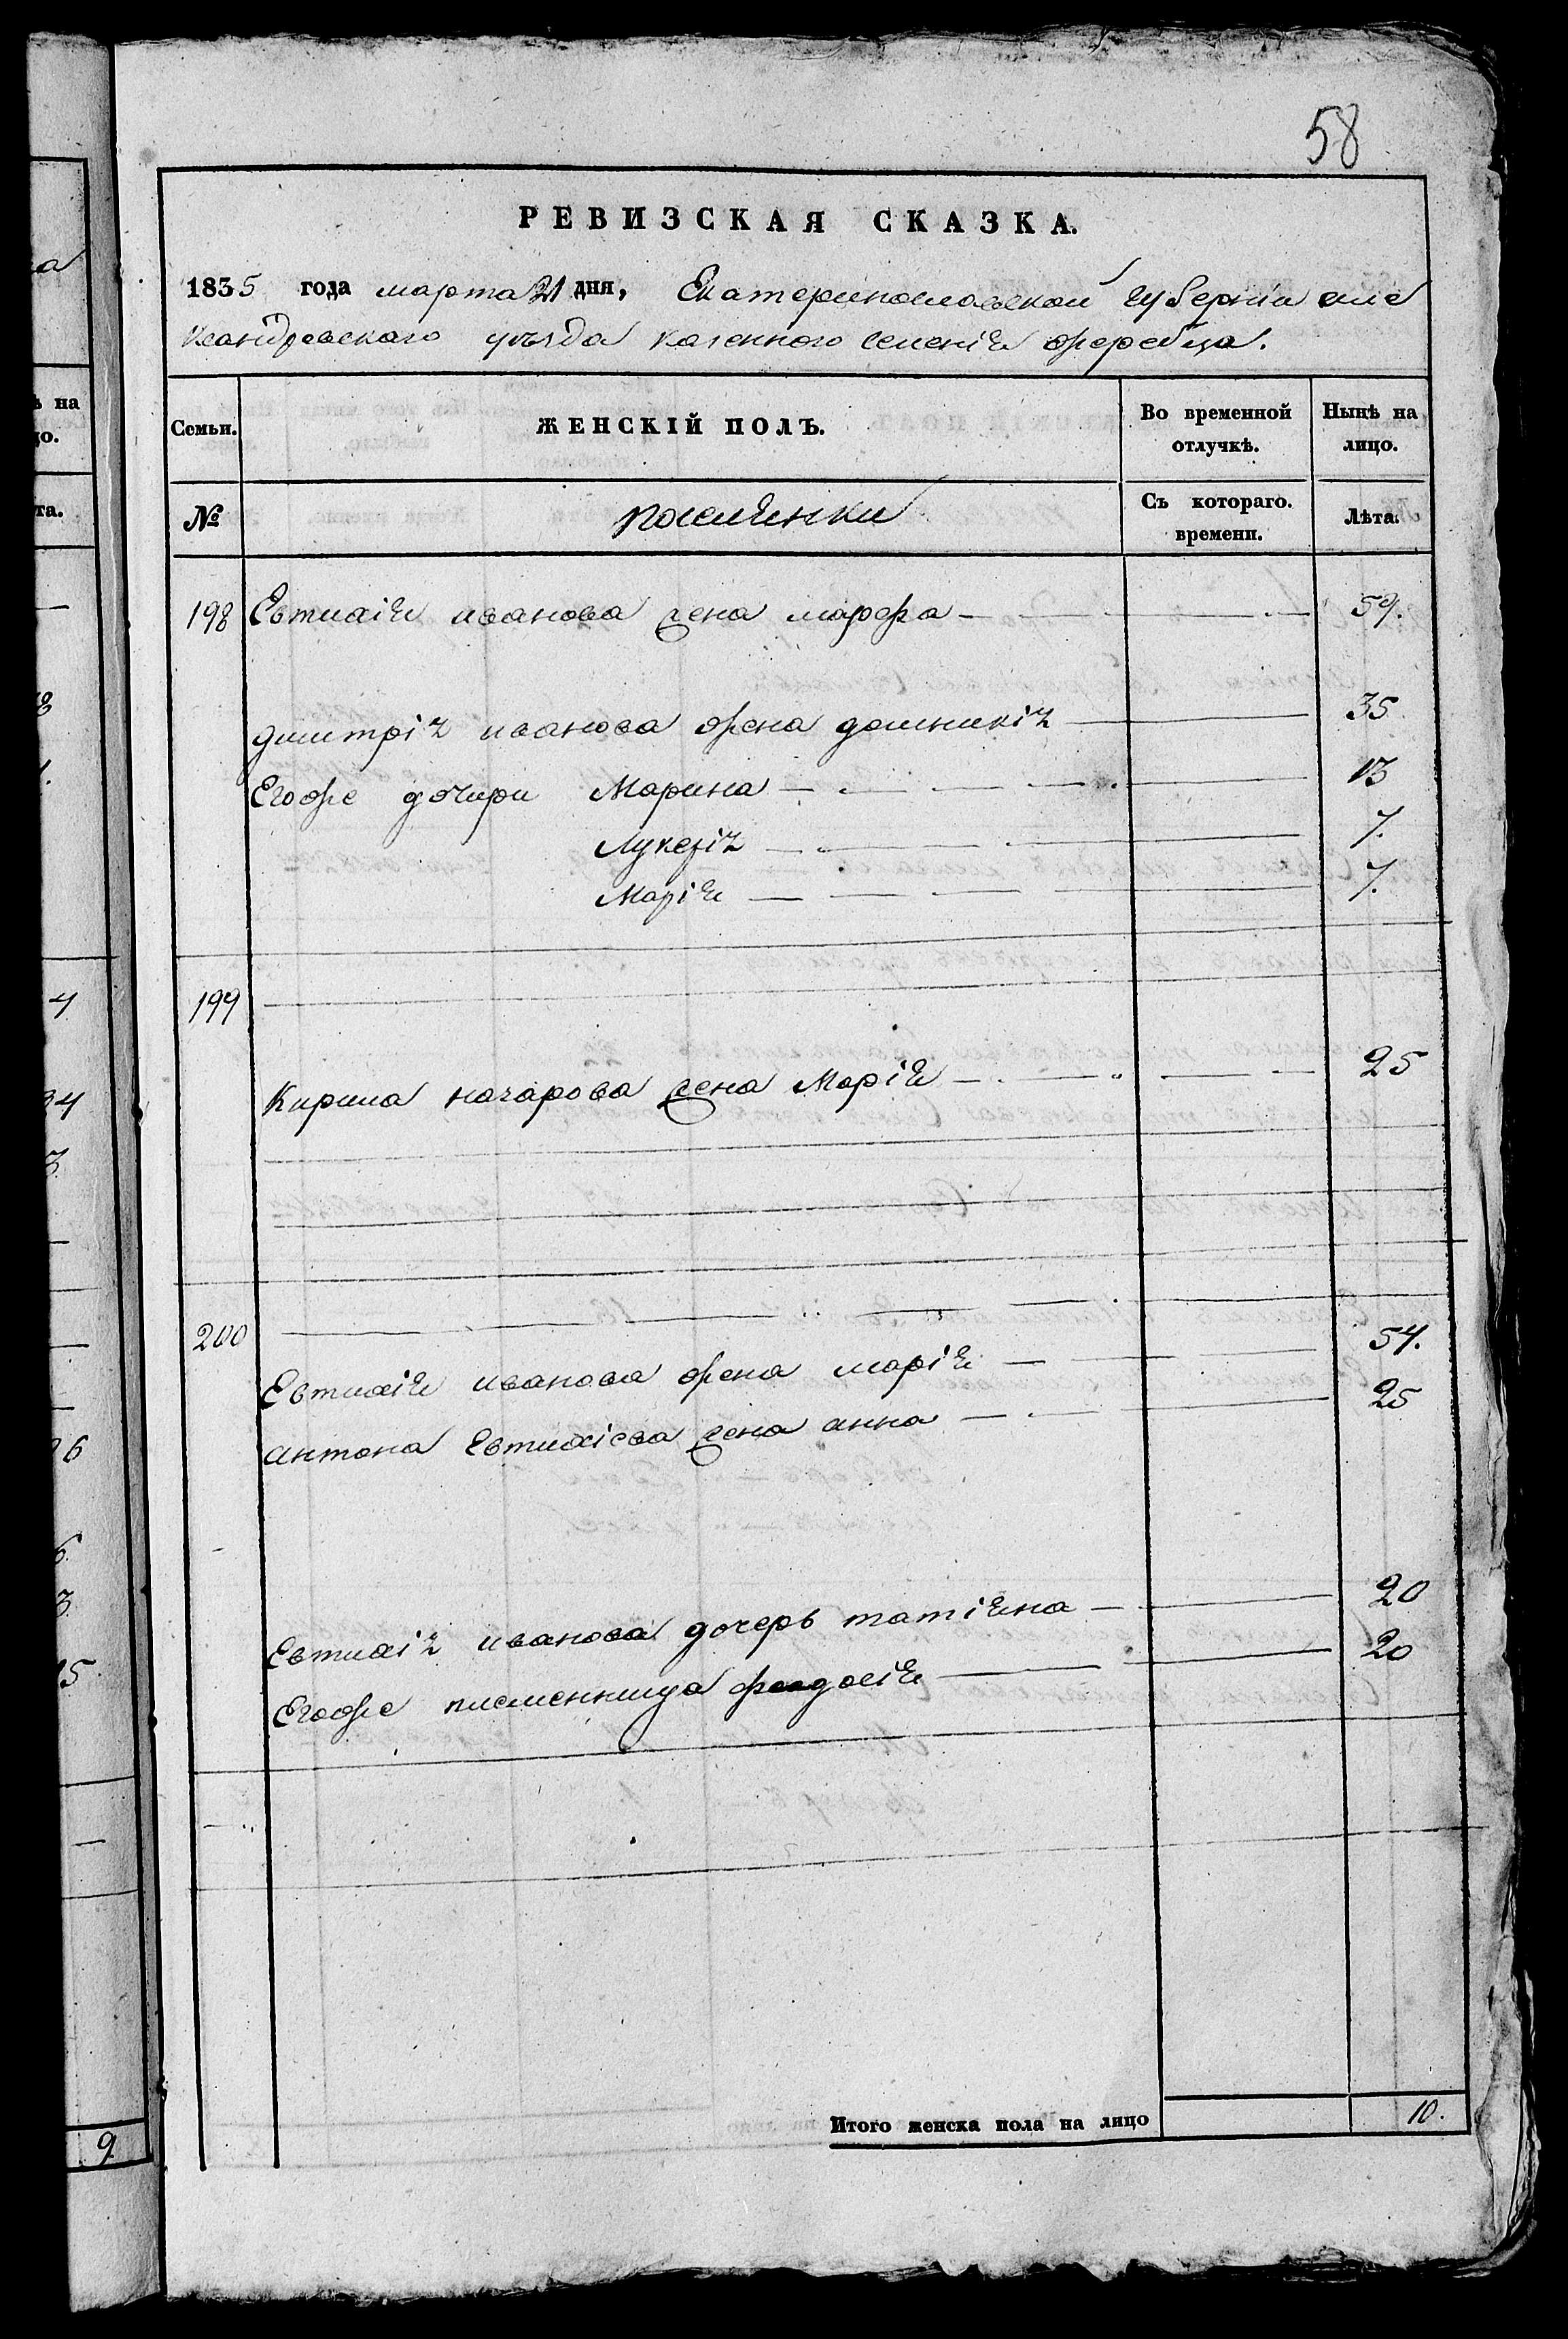 58
РЕВИЗСКАЯ СКАЗКА.
1835 года марта 21 дня, Екатеринославской губерніи але
ксандровскаго уѣзда казенного селенія жеребца.
Семьи. ЖЕНСКІЙ ПОЛЪ. Во временной отлучкѣ. Нынѣ на лицо.
№ Съ котораго. времени. Лѣта.
198 Евтихія иванова жена марфа 59.
дмитрія иванова жена домникія 35
Егоже дочири Марина 13
Лукерія 7.
Марія 7.
199
Кирила назарова жена Марія 25
200
Евтихія иванова жена марія 54.
антона Евтихіева жена анна 25
Евтихія иванова дочерь татіяна 20
Егоже племенница феодосія 20
Итого женска пола на лицо 10.
ь на
цо.
та.
4
34
3
26
6
3
15
9